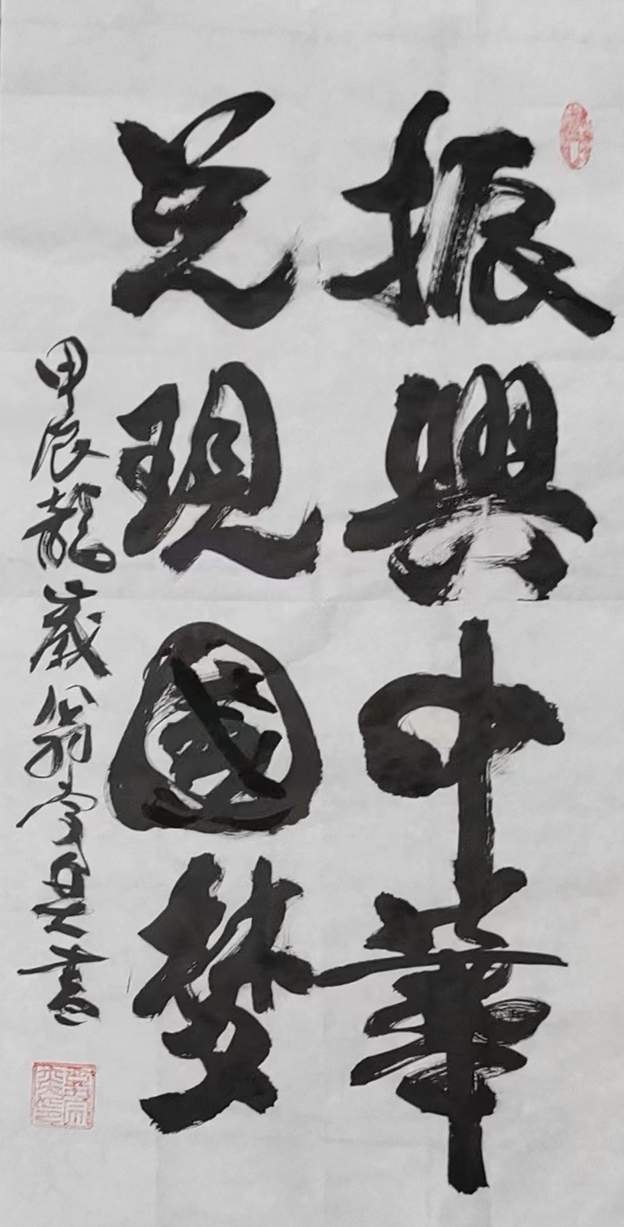 振興中華
兑現國梦
甲辰龍歲翁書